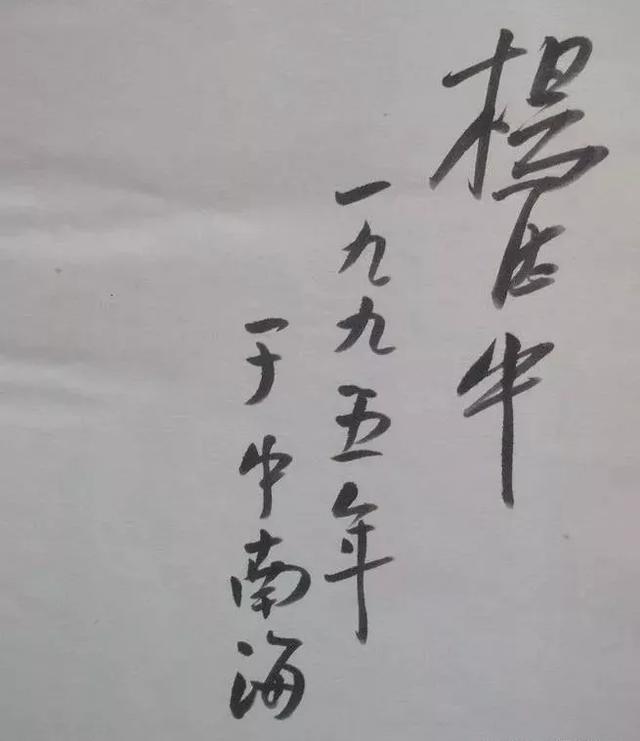 楊德中
一九九五年
于中南海